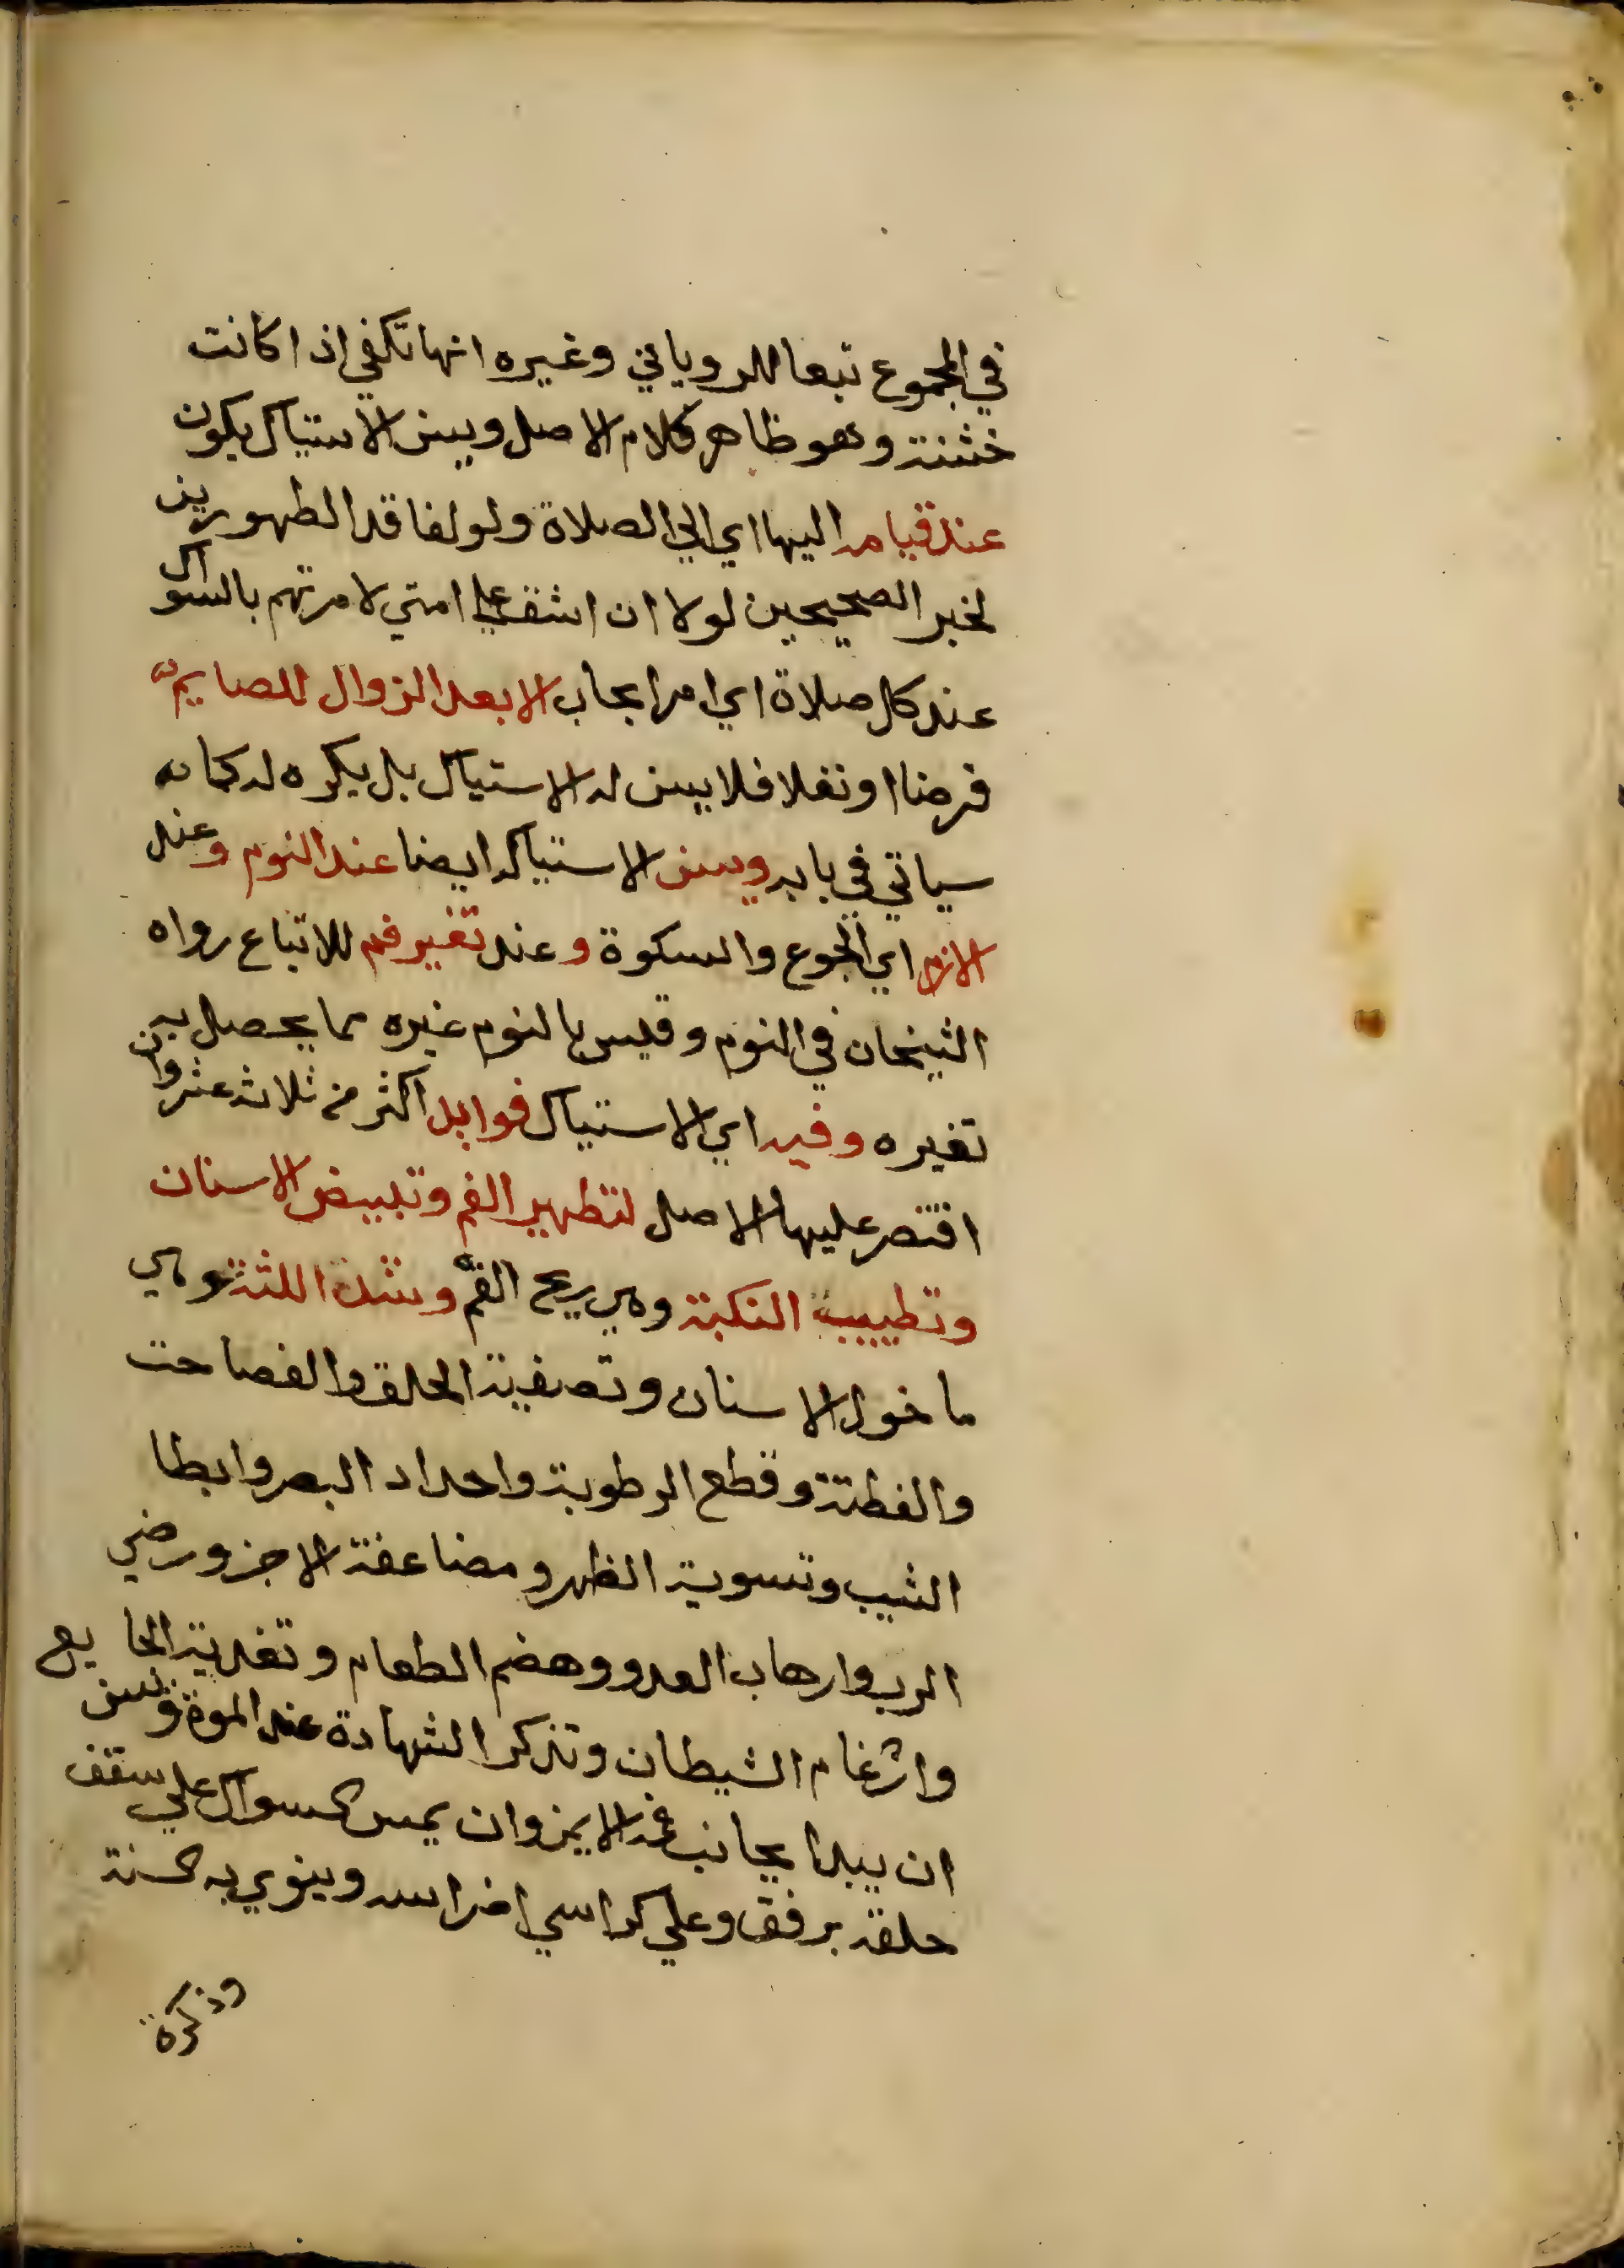 في المجموع تبعا للروياني وغيره انها تكفي اذا كانت
خشنة وهو ظاهر كلام الاصل ويسن الاستياك يكون
عند قيامه اليها اي الي الصلاة ولو لفاقد الطهورين
لخبر الصحيحين لولا ان اشق علي امتي لامرتهم بالسواك
عند كل صلاة اي امر ايجاب الا بعد الزوال للصايم
فرضا او نفلا فلا يسن له الاستياك بل يكره له كما
سياتي في بابه ويسن الاستياك ايضا عند النوم وعند
الازم اي الجوع والسكوة وعند تغير فم للاتباع رواه
الشيخان في النوم وقيس بالنوم غيره مما يحصل به
تغيره وفيه اي الاستياك فوايد اكثر من ثلاث عشر وان
اقتصر عليها الاصل لتطهير الفم وتبييض الاسنان
وتطييب النكهة وهي ريح الفم وشدة اللثة وهي
ما حول الاسنان وتصفية الحلق والفصاحت
والفطنة وقطع الرطوبة واحداد البصر وابطا
الشيب وتسوية الظهر ومضاعفة الاجر ورضي
الرب وارهاب العدو وهضم الطعام وتغدية الجايع
وارغام الشيطان وتذكر الشهادة عند الموة ويسن
ان يبدا بجانب فمه الايمن وان يمس السواك علي سقف
حلقه برفق وعلي كراسي اضراسه وينوي به السنة
وذكرة